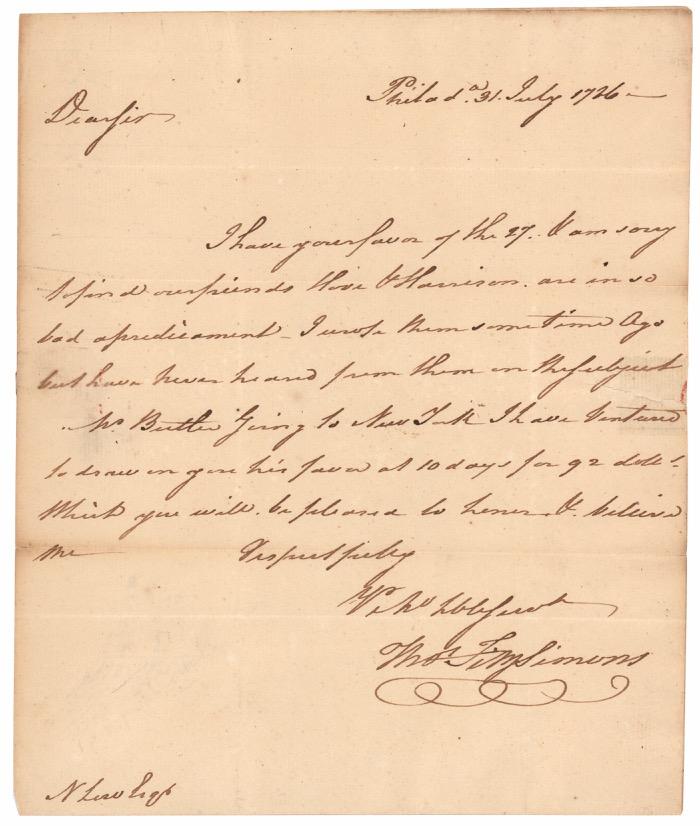 Philad.ª 31. July 1786
Dear Sir
I have your favor of the 27. & am sorry
to find our friends & Harrison. are in so
bad a predicament - I wrote them some time Ago
but have never heard from them on the Subject
Mr. Butler Going to New York I have Ventured
to draw on you his favor at 10 days for 92 dolls.
Which you will. be pleased to honor. & believe
me Respectfully
Yr
Thos. FitzSimons
N Low Esqr